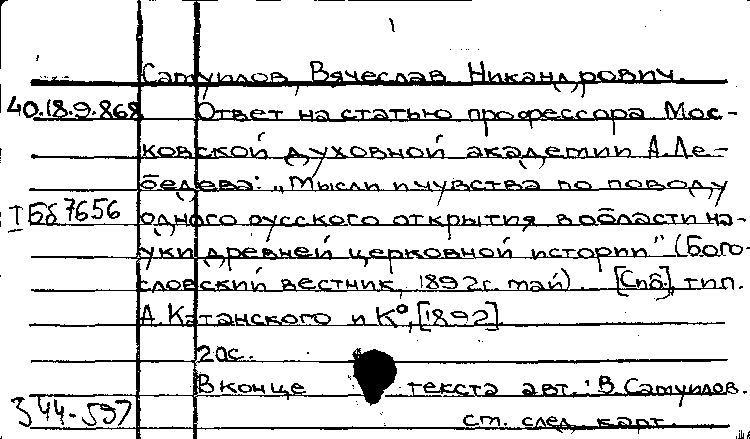 1
Самуилов, Вячеслав Никандрович.
40.18.9.868 Ответ на статью профессора Мос-
ковской духовной академии А.Ле-
бедева: „Мысли и чувства по поводу
I Бб 7656 одного русского открытия в области на-
уки древней церковной истории" (Бого-
словский вестник, 1892г. май). [Спб.], тип.
А.Катанского и К°, [1892]
20с.
В конце текста авт.: В.Самуилов.
344-597 ст. след. карт.